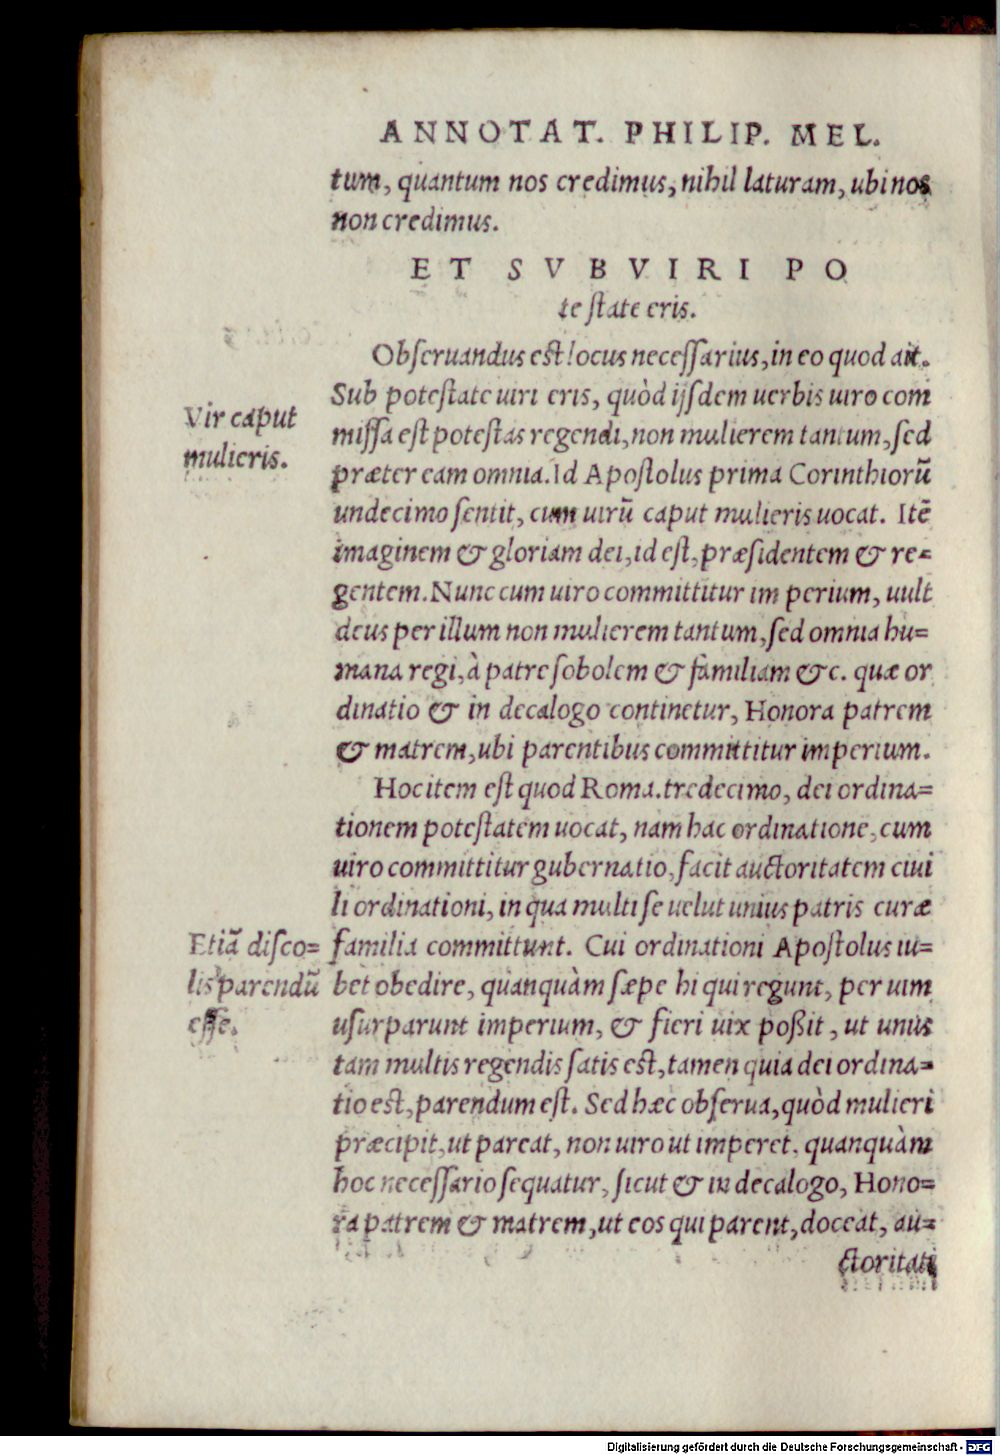 ANNOTAT. PHILIP. MEL.
tum, quantum nos credimus, nihil laturam, ubi nos
non credimus.
ET SVB VIRI PO
teſtate eris.
Obſeruandus eſt locus neceſſarius, in eo quod ait.
Sub poteſtate uiri eris, quòd ijſdem uerbis uiro com
miſſa eſt poteſtas regendi, non mulierem tantum, ſed
præter eam omnia. Id Apoſtolus prima Corinthiorũ
undecimo ſentit, cum uirũ caput mulieris uocat. Itẽ
imaginem & gloriam dei, id eſt, præſidentem & re=
gentem. Nunc cum uiro committitur imperium, uult
deus per illum non mulierem tantum, ſed omnia hu=
mana regi, à patre ſobolem & familiam &c. quæ or
dinatio & in decalogo continetur, Honora patrem
& matrem, ubi parentibus committitur imperium.
Hoc item eſt quod Roma. tredecimo, dei ordina=
tionem poteſtatem uocat, nam hac ordinatione, cum
uiro committitur gubernatio, facit auctoritatem ciui
li ordinationi, in qua multi ſe uelut unius patris curæ
familia committunt. Cui ordinationi Apoſtolus iu=
bet obedire, quanquàm ſæpe hi qui regunt, per uim
uſurparunt imperium, & fieri uix poßit, ut unus
tam multis regendis ſatis eſt, tamen quia dei ordina=
tio eſt, parendum eſt. Sed hæc obſerua, quòd mulieri
præcipit, ut pareat, non uiro ut imperet, quanquàm
hoc neceſſario ſequatur, ſicut & in decalogo, Hono=
ra patrem & matrem, ut eos qui parent, doceat, au=
ctoritati
Vir caput
mulieris.
Etiã diſco=
lis parendũ
eſſe.
Digitalisierung gefördert durch die Deutsche Forschungsgemeinschaft - DFG